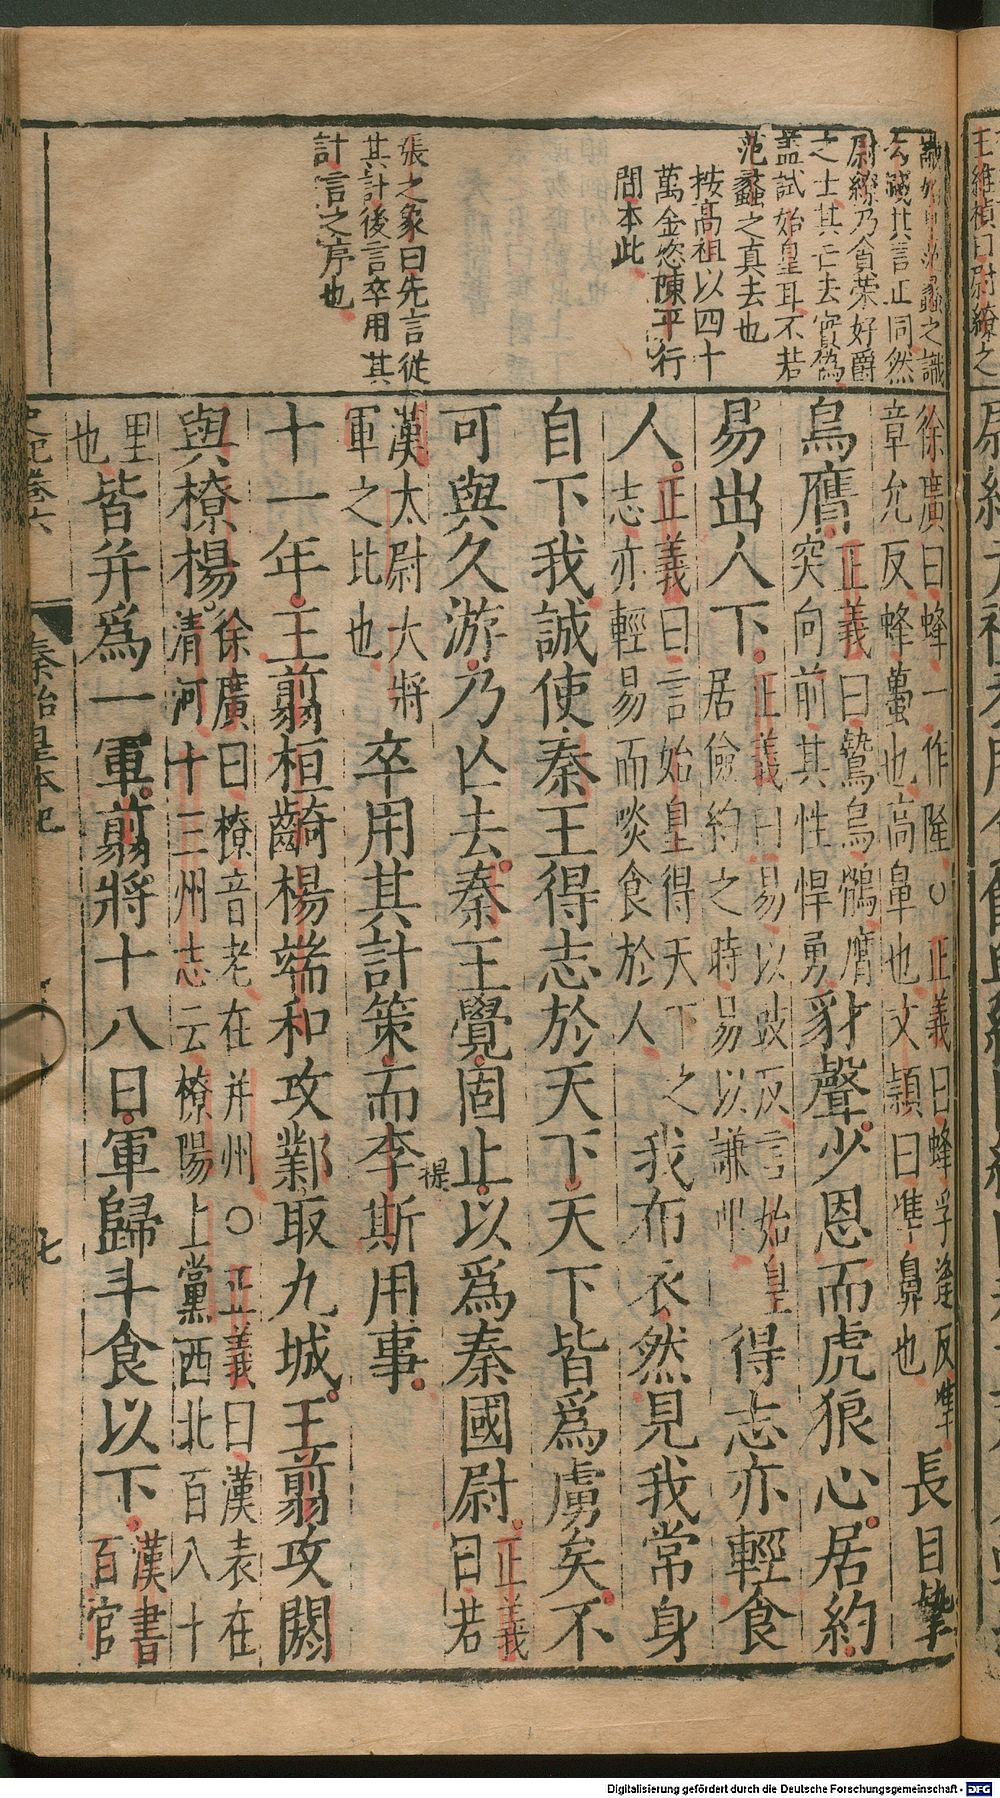 王維楨曰尉繚之
識始皇猶范蠡之識
勾踐其言正同然
尉繚乃貪榮好爵
之士其亡去實偽
盖試始皇耳不若
范蠡之真去也
按高祖以四十
萬金恣陳平行
間本此
張之象曰先言從
其計後言卒用其
計言之序也
徐廣曰蜂一作隆〇正義曰蜂孚逢反準
章允反蜂蠆也高鼻也文頴曰準鼻也
長目摯
鳥膺
正義曰鷙鳥鶻膺
突向前其性悍勇
豺聲少恩而虎狼心居約
易出人下
正義曰易以豉反言始皇
居儉約之時易以謙卑
得志亦輕食
人
正義曰言始皇得天下之
志亦輕易而啖食於人
我布衣然見我常身
自下我誠使秦王得志於天下天下皆爲虜矣不
可與久游乃亡去秦王覺固止以爲秦國尉
正義
曰若
漢太尉大將
軍之比也
卒用其計策而李斯用事
十一年王翦桓齮楊端和攻鄴取九城王翦攻閼
與橑楊
徐廣曰橑音老在并州〇正義曰漢表在
清河十三州志云橑陽上黨西北百八十
里
也
皆并爲一軍翦將十八日軍歸斗食以下
漢書
百官
史記卷六
秦始皇本紀
七
Digitalisierung gefördert durch die Deutsche Forschungsgemeinschaft - DFG